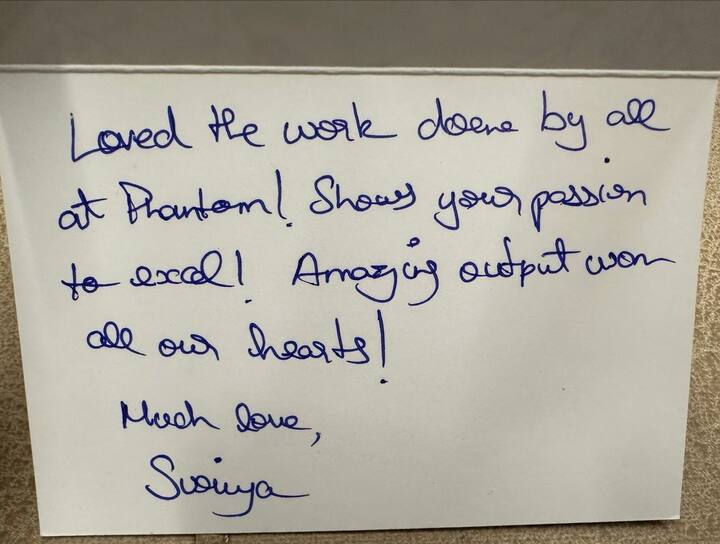 Loved the work done by all
at Phantom! Shows your passion
to excel! Amazing output won
all our hearts!
Much love,